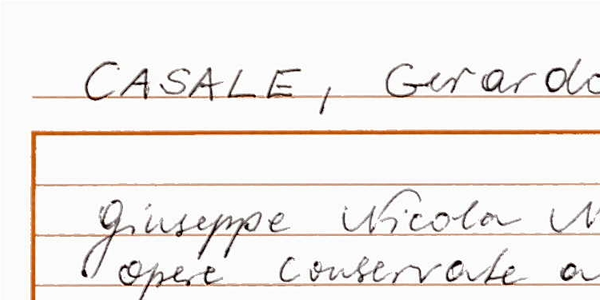 CASALE, Gerardo
Giuseppe Nicola
opere conservate a